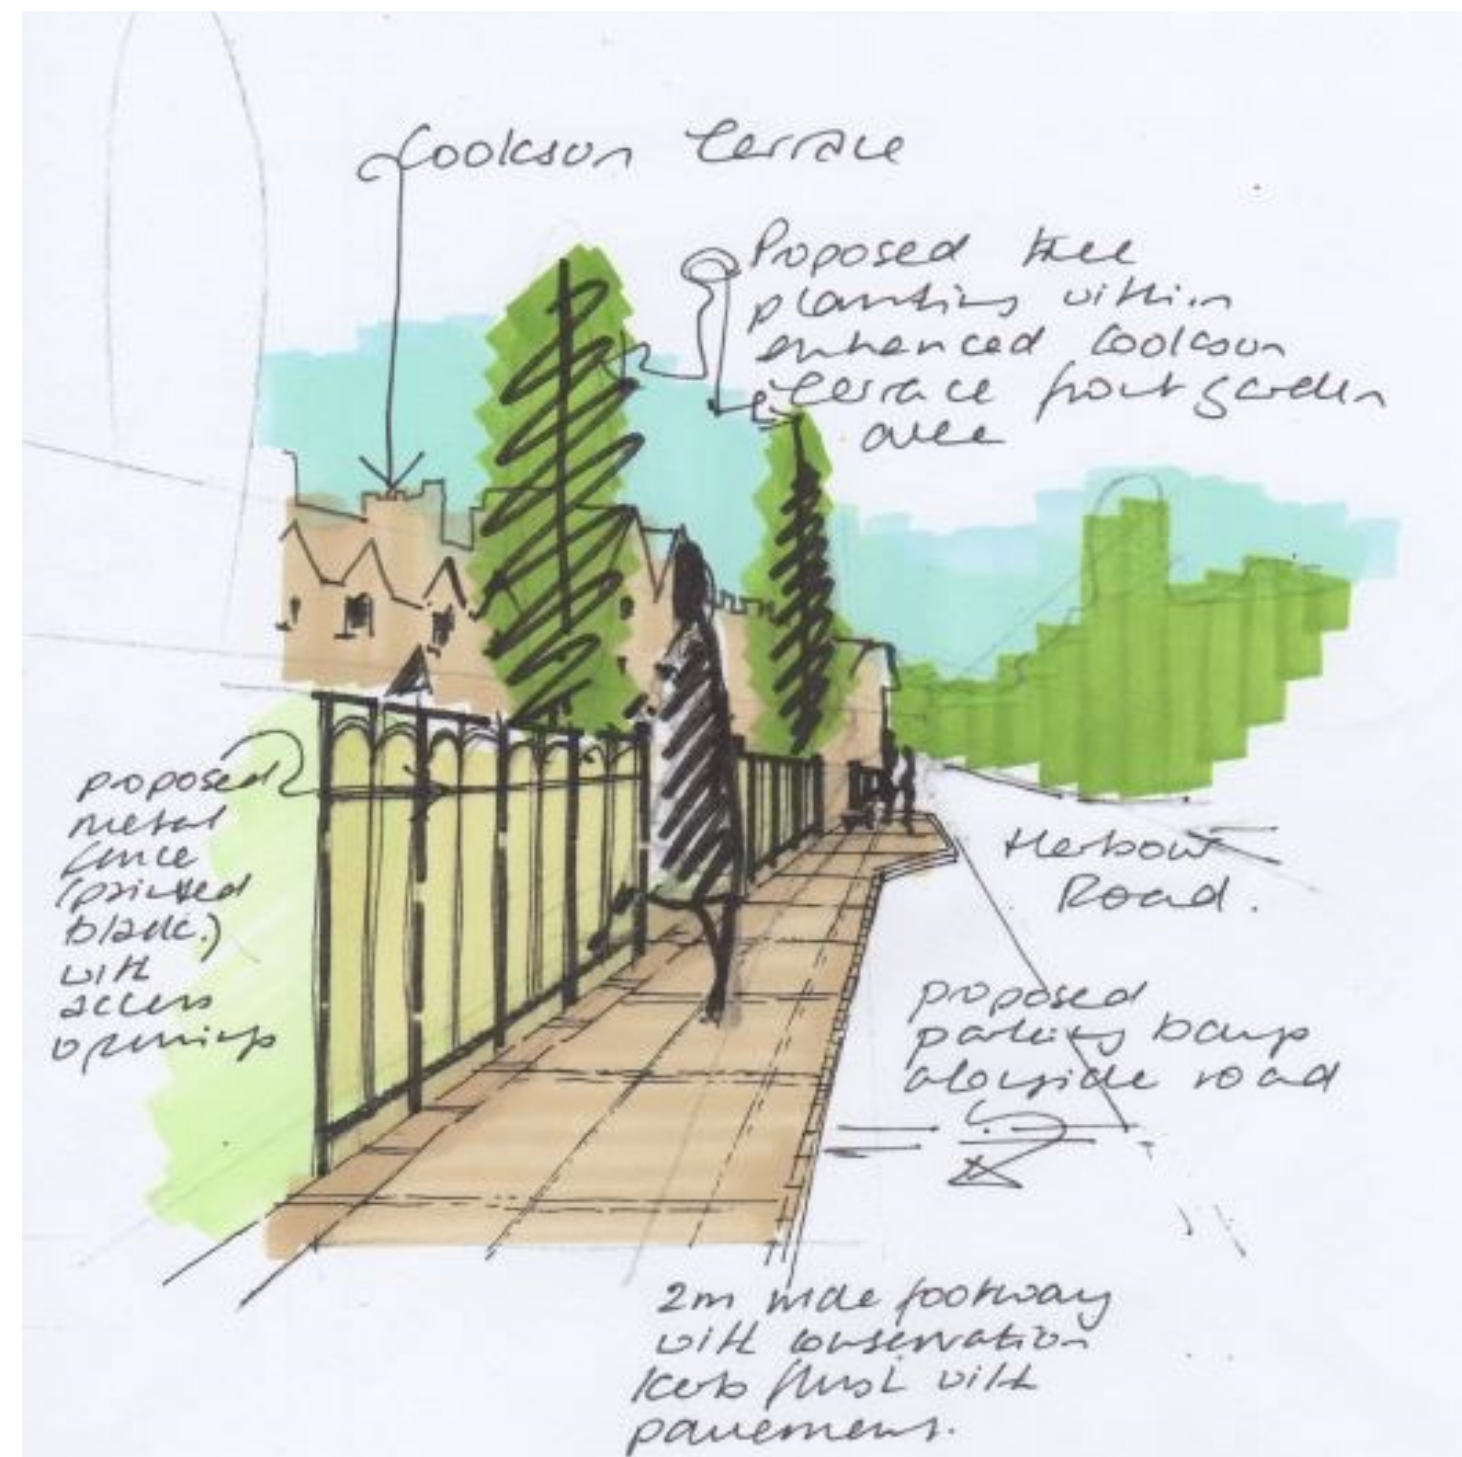 Cookson Terrace
Proposed tree
planting within
enhanced Cookson
Terrace front garden
area
proposed
metal
fence
(painted
black.)
with
access
openings
Harbour
Road.
proposed
parking bays
alongside road
2m wide footway
with conservation
kerb flush with
pavement.